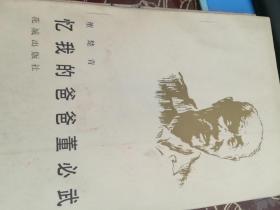 忆我的爸爸董必武
董楚青
花城出版社